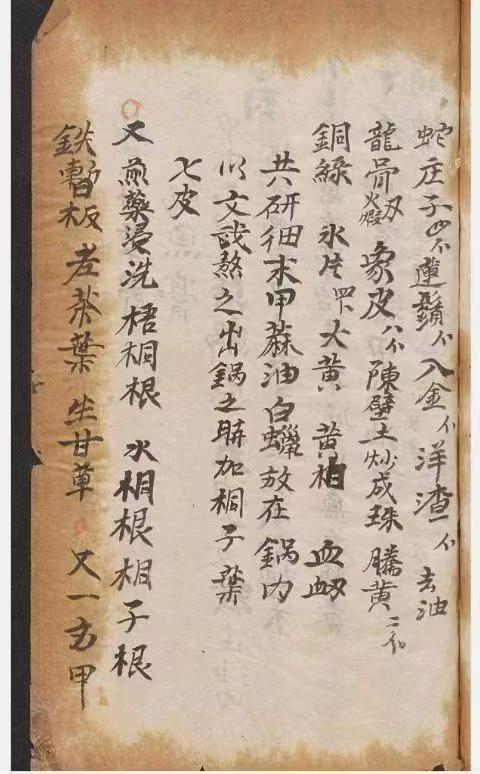 蛇庄子四个蓮鬚个入金个洋渣个去油
龍骨火煅刄象皮八个陳壁土炒成珠騰黄二个
銅綠氷片四下大黄黄柏血刼
共研细末甲蔴油白蠟放在鍋内
以文武熬之出鍋之時加桐子葉
七皮
又煎藥湯洗梧桐根水桐根柏子根
鉄板老茶葉生甘草又一方甲